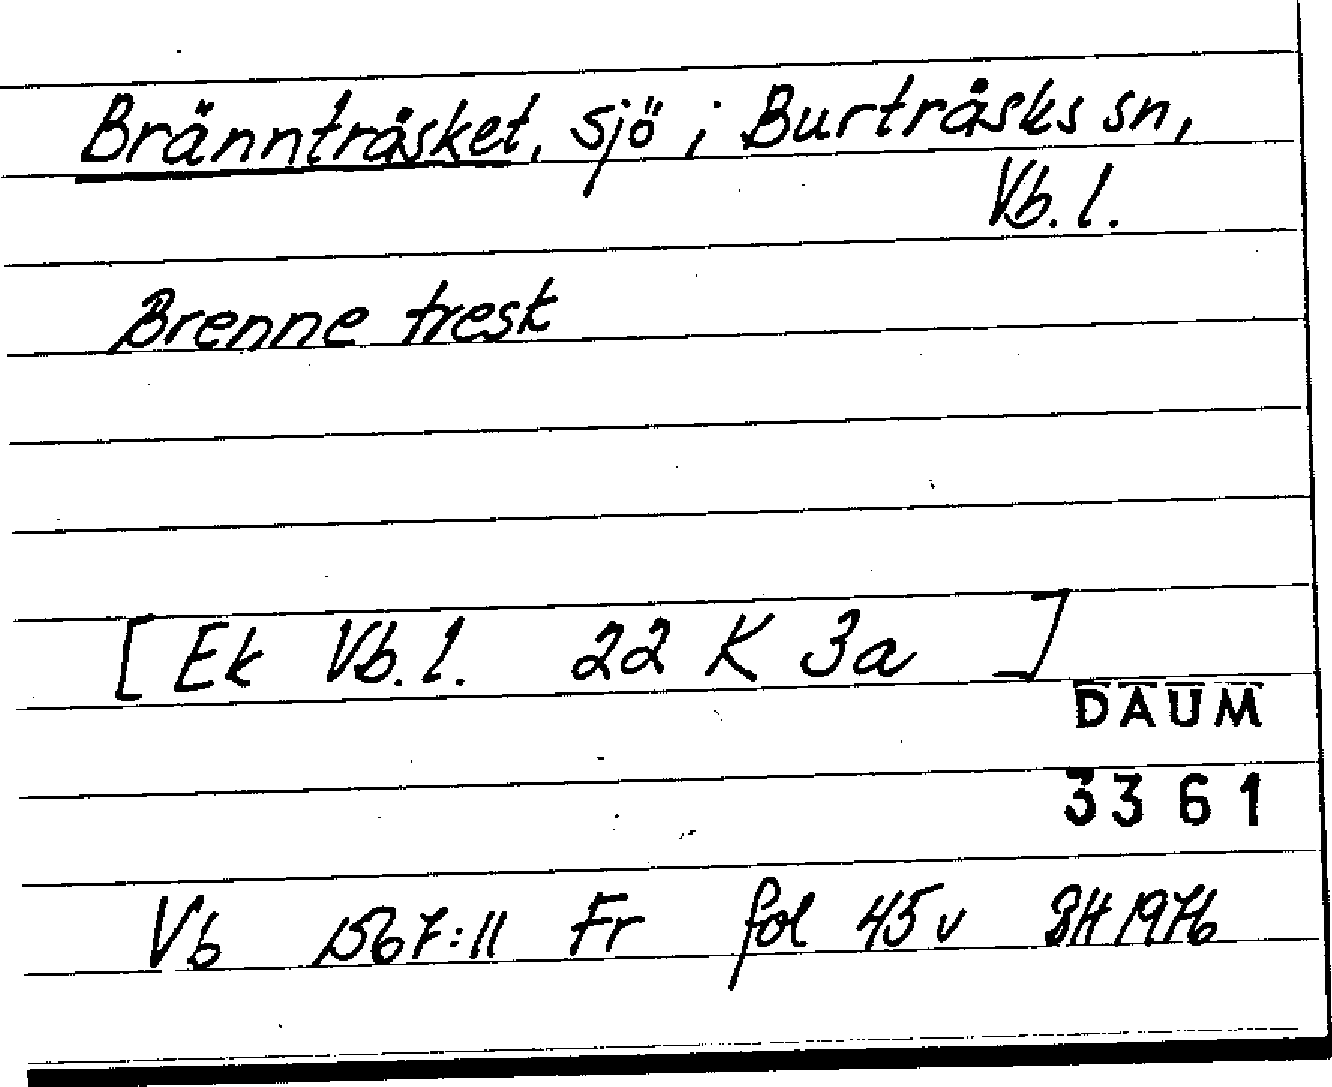 Brännträsket, sjö i Burträsks sn,
Vb. l.
Brenne tresk
[Ek Vb. l. 22 K 3a ]
DAUM
3361
Vb 1567:11 Fr fol 45v BH 1976